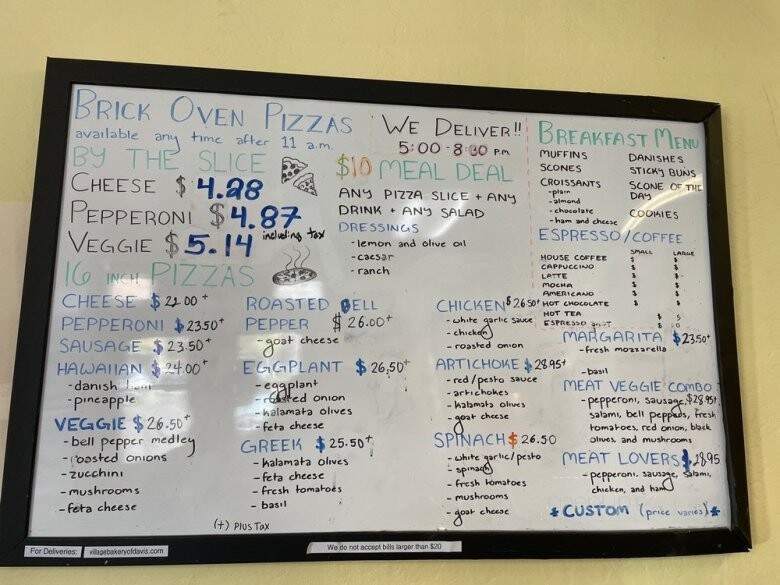 BRICK OVEN PIZZAS
available any time after 11 a.m.
BY THE SLICE
CHEESE $4.28
PEPPERONI $4.87
VEGGIE $5.14 including tax
WE DELIVER!!
5:00-8:00 P.M.
$10 MEAL DEAL
ANY PIZZA SLICE + ANY
DRINK + ANY SALAD
DRESSINGS
-lemon and olive oil
-caesar
-ranch
BREAKFAST MENU
MUFFINS
SCONES
CROISSANTS
-plain
-almond
-chocolate
-ham and cheese
DANISHES
STICKY BUNS
SCONE OF THE
DAY
COOKIES
ESPRESSO/COFFEE
SMALL LARGE
HOUSE COFFEE $ $
CAPPUCCINO $ $
LATTE $ $
MOCHA $ $
AMERICANO $ $
HOT CHOCOLATE $ $
HOT TEA $ $
ESPRESSO $
16 INCH PIZZAS
CHEESE $22.00+
PEPPERONI $23.50+
SAUSAGE $23.50+
HAWAIIAN $24.00+
-danish
-pineapple
VEGGIE $26.50+
-bell pepper medley
-roasted onions
-zucchini
-mushrooms
-feta cheese
ROASTED BELL
PEPPER $26.00+
-goat cheese
EGGPLANT $26.50+
-eggplant
-roasted onion
-kalamata olives
-feta cheese
GREEK $25.50+
-kalamata olives
-feta cheese
-fresh tomatoes
-basil
CHICKEN $26.50+
-white garlic sauce
-chicken
-roasted onion
ARTICHOKE $28.95+
-red/pesto sauce
-artichokes
-kalamata olives
-goat cheese
SPINACH $26.50
-white garlic/pesto
-spinach
-fresh tomatoes
-mushrooms
-goat cheese
MARGARITA $23.50+
-fresh mozzarella
-basil
MEAT VEGGIE COMBO
-pepperoni, sausage, $28.95+
salami, bell peppers, fresh
tomatoes, red onion, black
olives, and mushrooms
MEAT LOVERS $28.95
-pepperoni, sausage, salami,
chicken, and ham
*CUSTOM (price varies)*
(+) PLUS TAX
For Deliveries: villagebakeryofdavis.com
We do not accept bills larger than $20